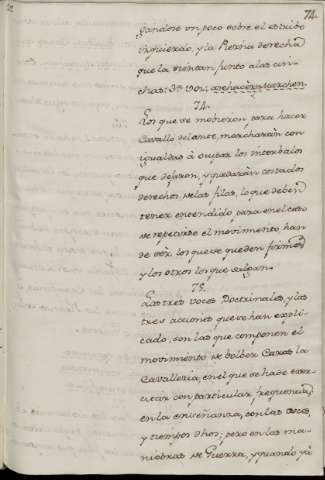 74.
yandose un poco sobre el estribo
izquierdo, y la Pierna derecha
que la sientan junto a las cin-
chas: 3.ª Voz,
74.
Los que se movieron para hacer
Cavallo delante, marcharàn con
igualdad à ocupar los intervalos
que dejaron, y quedaràn costados
derechos de las filas, lo que deben
tener entendido para en el caso
de repetirse el movimiento, han
de ser, los que se queden firmes
y los otros los que salgan.
75.
Las tres voces Doctrinales, y las
tres acciones que se han expli-
cado, son las que componen el
movimiento de bolber Caras la
Cavalleria, en el que se ha de exer-
citar con particular frequencia
en la enseñanza, con las voces,
y tiempos dhos; pero en las ma-
niobras de Guerra, y quando yà